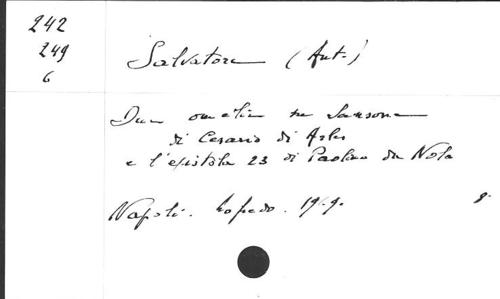 242
249
6
Salvatore (Ant.)
Due omelie su Sansone
di Cesario di Arles
e l'epistola 23 di Paolino da Nola
Napoli. Loffredo. 19
8.